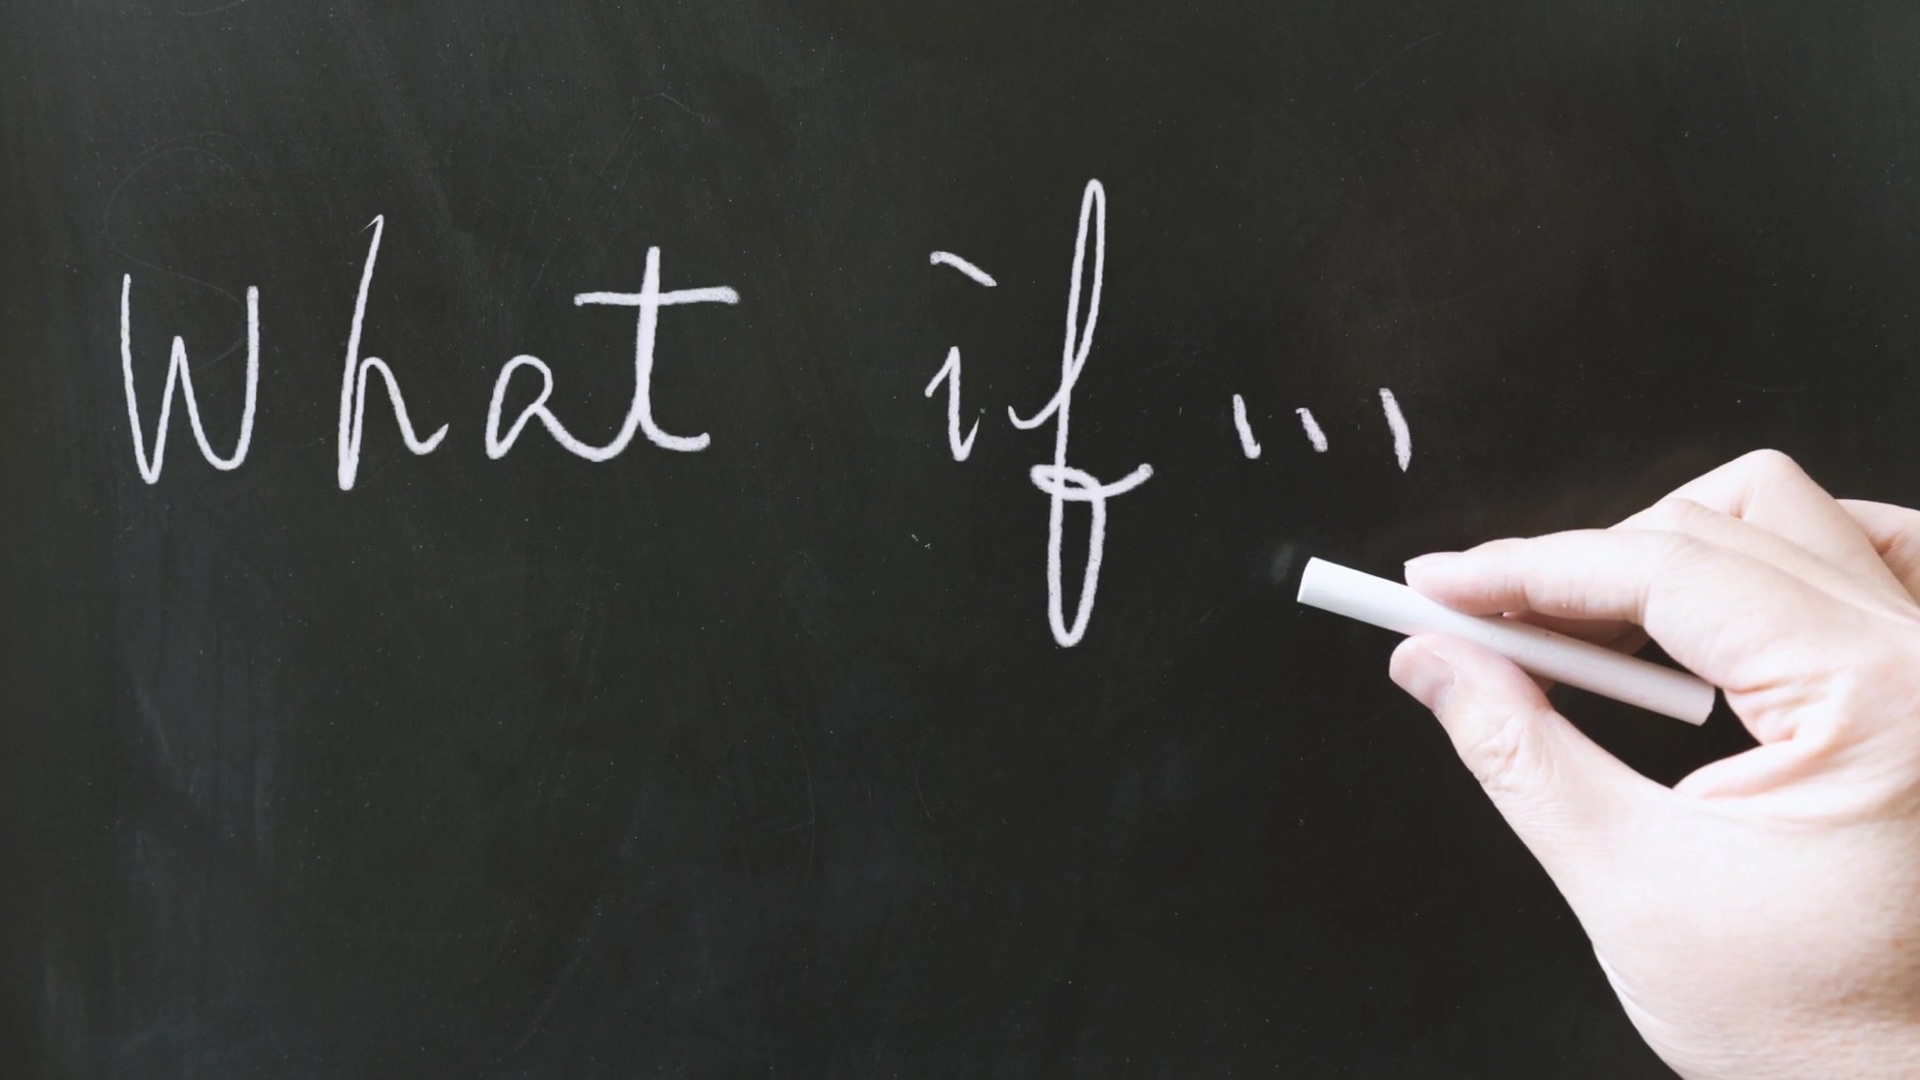 What if ...